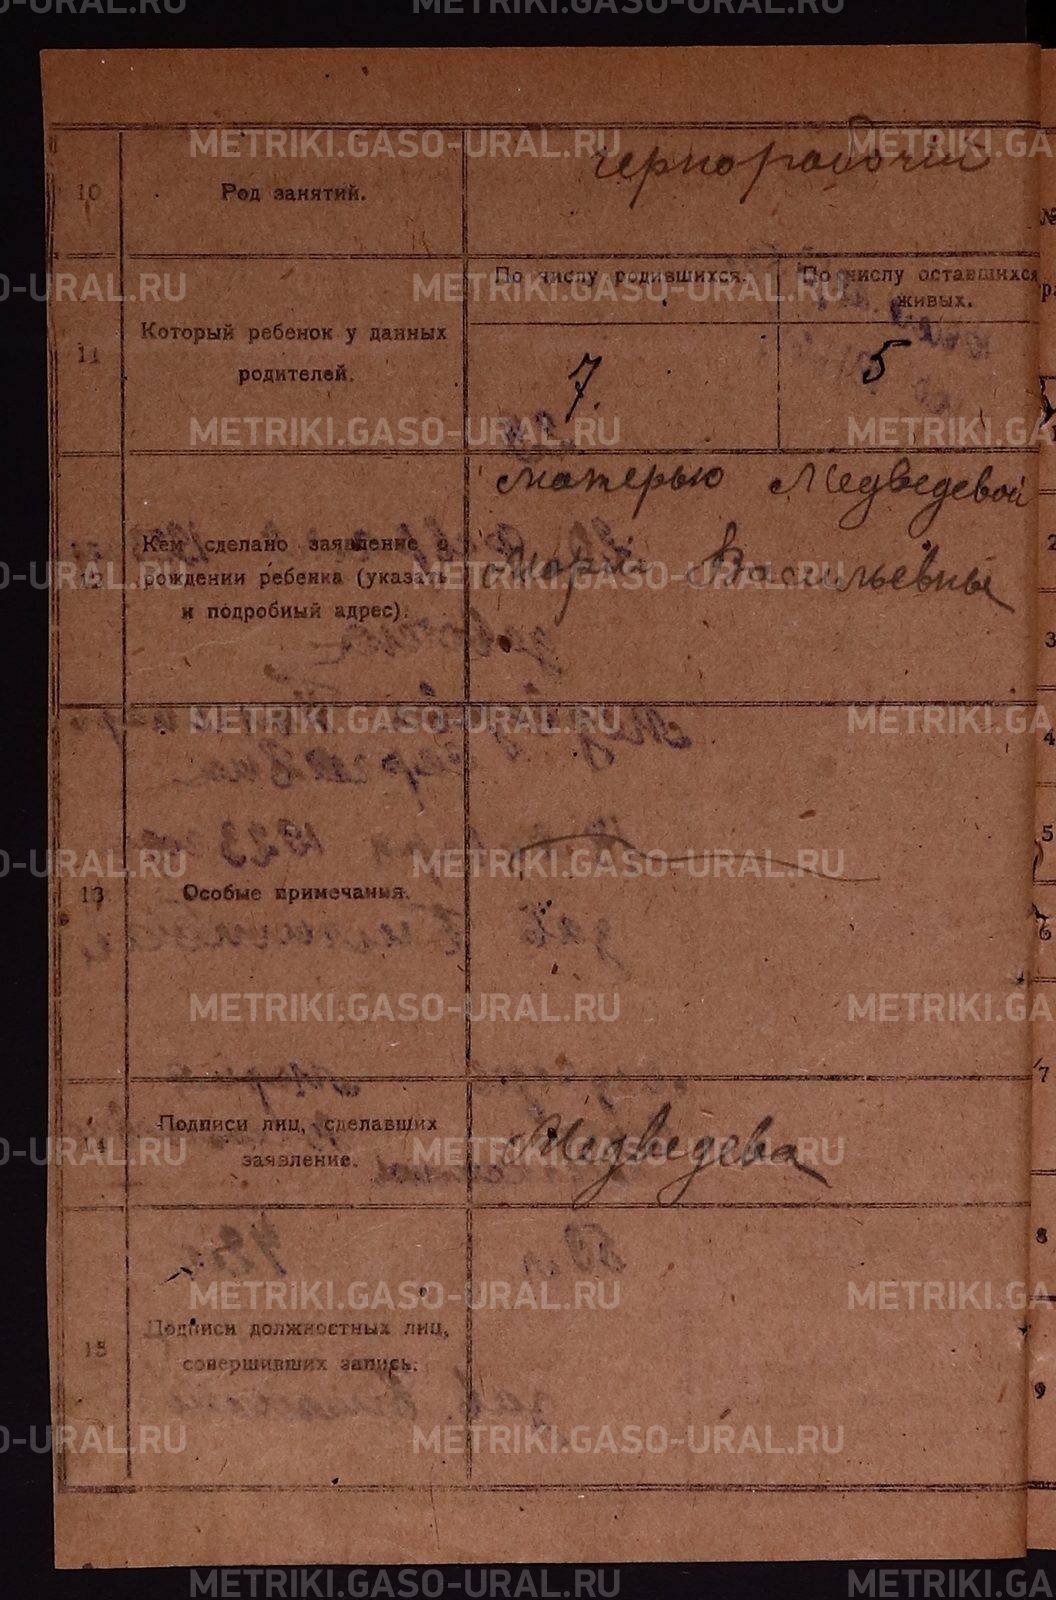 METRIKI.GASO-URAL.RU
10
Род занятий.
чернорабочій
11
Который ребенок у данных
родителей.
По числу родившихся.
По числу оставшихся
живых.
7.
5
12
Кем сделано заявление о
рождении ребенка (указать
и подробный адрес).
Матерью Медведевой
Марiй Васильевны
13
Особые примечания.
14
Подписи лиц, сделавших
заявление.
Медведева
15
Подписи должностных лиц,
совершивших запись.
№
2
3
4
5
6
7
8
9